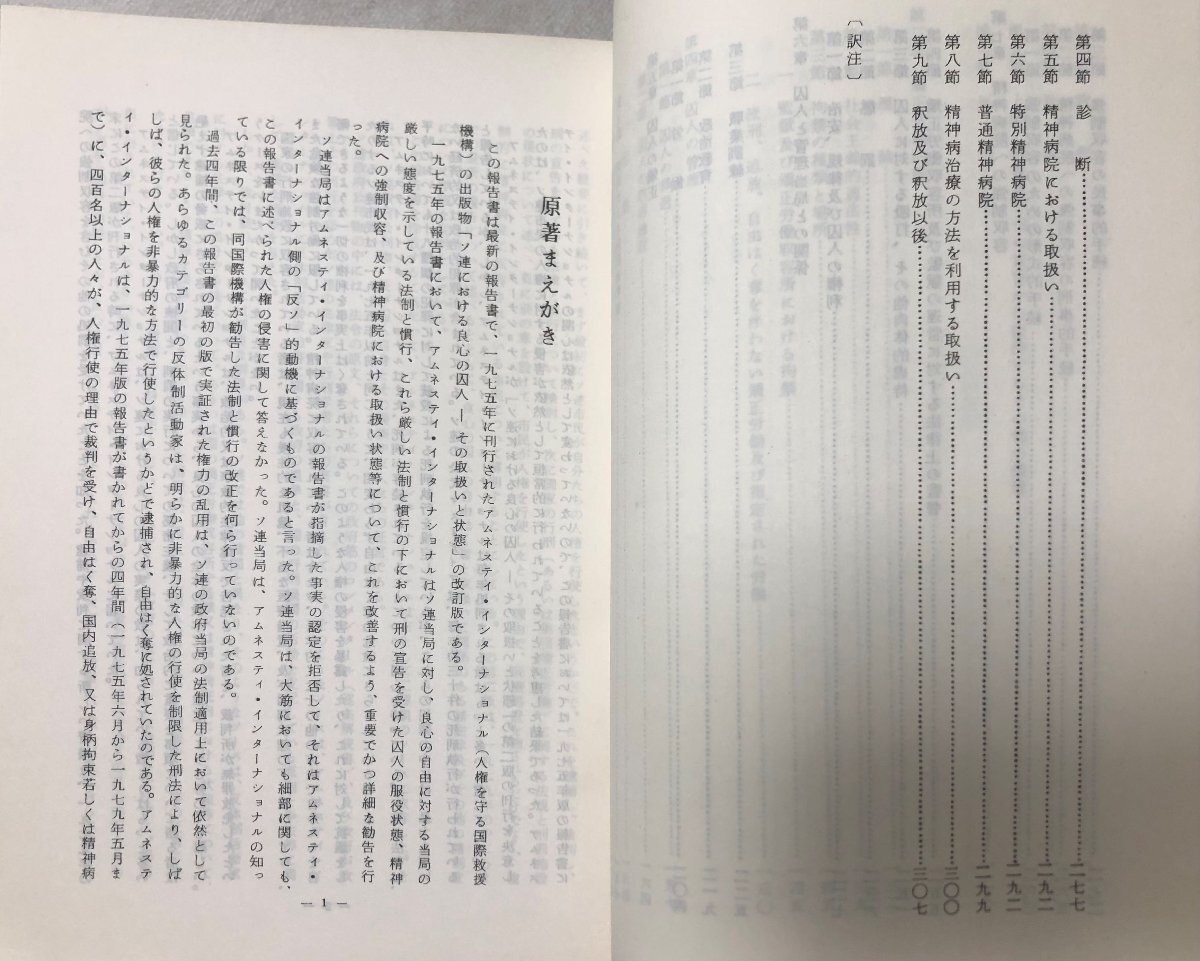 第四節　診　　断……一七七
第五節　精神病院における取扱い……一九二
第六節　特別精神病院……一九二
第七節　普通精神病院……一九九
第八節　精神病治療の方法を利用する取扱い……三〇〇
第九節　釈放及び釈放以後……三〇七
〔訳注〕
原著まえがき
この報告書は最新の報告書で、一九七五年に刊行されたアムネスティ・インターナショナル（人権を守る国際救援
機構）の出版物「ソ連における良心の囚人―その取扱いと状態」の改訂版である。
一九七五年の報告書において、アムネスティ・インターナショナルはソ連当局に対し、良心の自由に対する当局の
厳しい態度を示している法制と慣行、これら厳しい法制と慣行の下において刑の宣告を受けた囚人の服役状態、精神
病院への強制収容、及び精神病院における取扱い状態等について、これを改善するよう、重要でかつ詳細な勧告を行
った。
ソ連当局はアムネスティ・インターナショナルの報告書が指摘した事実の認定を拒否して、それはアムネスティ・
インターナショナル側の「反ソ」的動機に基づくものであると言った。ソ連当局は、大筋においても細部に関しても、
この報告書に述べられた人権の侵害に関して答えなかった。ソ連当局は、アムネスティ・インターナショナルの知っ
ている限りでは、同国際機構が勧告した法制と慣行の改正を何ら行っていないのである。
過去四年間、この報告書の最初の版で実証された権力の乱用は、ソ連の政府当局の法制適用上において依然として
見られた。あらゆるカテゴリーの反体制活動家は、明らかに非暴力的な人権の行使を制限した刑法により、しば
しば、彼らの人権を非暴力的な方法で行使したというかどで逮捕され、自由はく奪に処されていたのである。アムネステ
ィ・インターナショナルは、一九七五年版の報告書が書かれてからの四年間（一九七五年六月から一九七九年五月ま
で）に、四百名以上の人々が、人権行使の理由で裁判を受け、自由はく奪、国内追放、又は身柄拘束若しくは精神病
― 1 ―